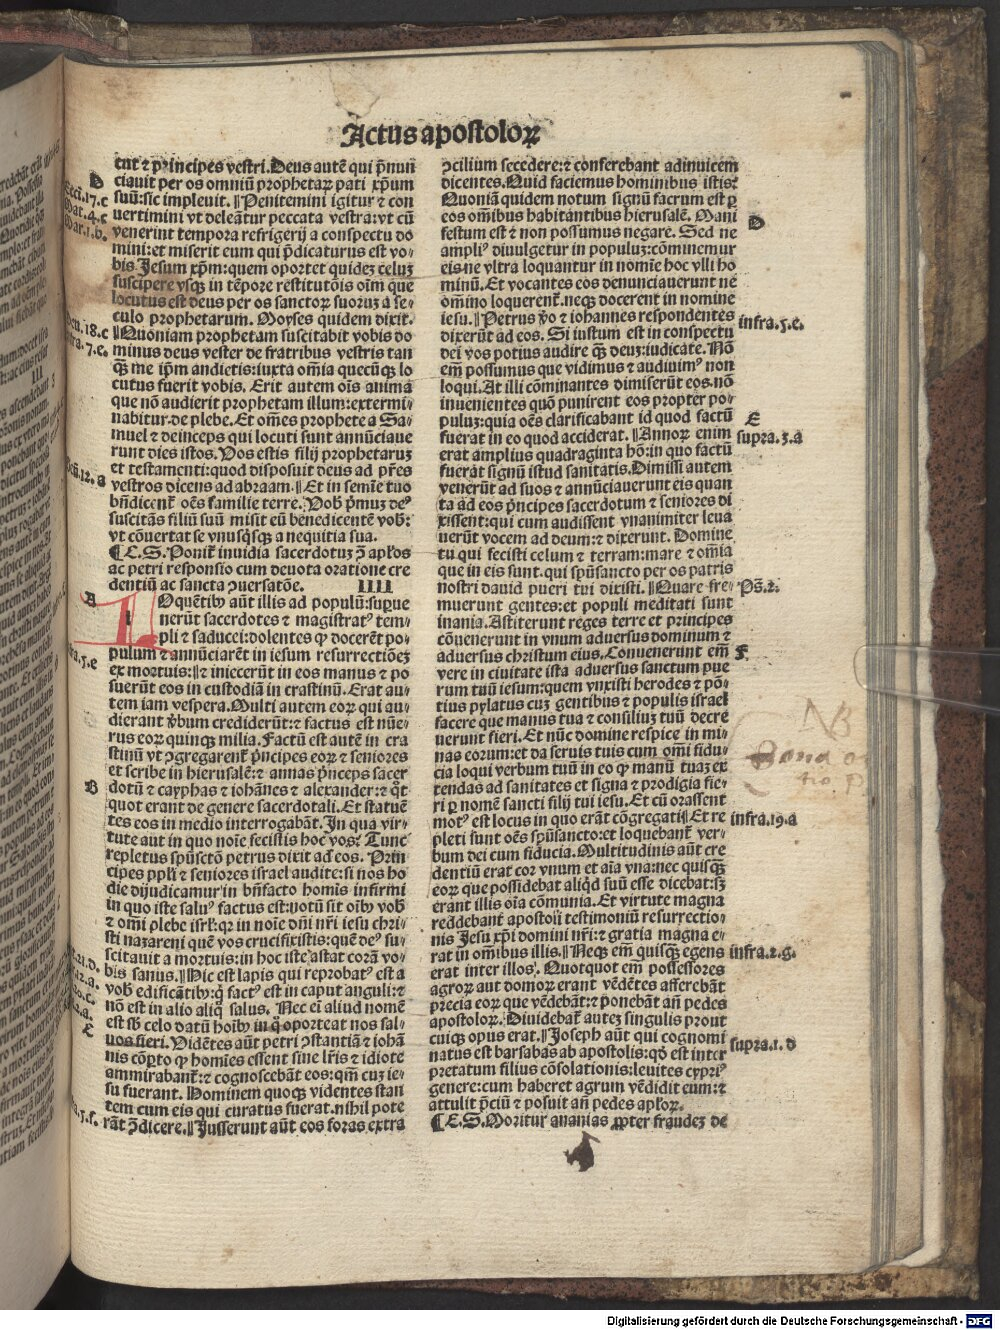 Actus apostoloꝝ
tnt ⁊ principes vestri. Deus autē qui p̄nun
ciauit per os omniū prophetaꝝ pati xp̄um
suū: sic impleuit. Penitemini igitur ⁊ con
uertimini vt deleātur peccata vestra: vt cū
venerint tempora refrigerij a conspectu do
mini: et miserit eum qui p̄dicaturus est vo⸗
bis Jesum xp̄m: quem oportet quideꝫ celuꝫ
suscipere vsqꝫ in tēpore restitutōis oīm que
locutus est deus per os sanctoꝝ suoruꝫ a se⸗
culo prophetarum. Moyses quidem dixit.
Quoniam prophetam suscitabit vobis do
minus deus vester de fratribus vestris tan
qꝫ me ip̄m audietis: iuxta om̄ia quecūqꝫ lo
cutus fuerit vobis. Erit autem oīs anima
que nō audierit prophetam illum: extermi⸗
nabitur de plebe. Et om̄es prophete a Sa⸗
muel ⁊ deinceps qui locuti sunt annūciaue
runt dies istos. Vos estis filij prophetaruꝫ
et testamenti: quod disposuit deus ad pr̄es
vestros dicens ad abraam. Et in semīe tuo
bn̄dicent᷑ oēs familie terre. Vob̄ p̄muꝫ deꝰ
suscitās filiū suū misit eū benedicentē vob̄:
vt cōuertat se vnusqꝫqꝫ a nequitia sua.
¶ C. S. Ponit᷑ inuidia sacerdotuꝫ ꝯ̄ ap̄los
ac petri responsio cum deuota oratione cre
dentiū ac sancta ꝯuersatōe. IIII
L Oquētibꝰ aūt illis ad populū: superue
nerūt sacerdotes ⁊ magistratꝰ tem⸗
pli ⁊ saducei: dolentes ꝙ docerēt po⸗
pulum ⁊ annūciarēt in iesum resurrectiōeꝫ
ex mortuis: ⁊ iniecerūt in eos manus ⁊ po
suerūt eos in custodiā in crastinū. Erat au⸗
tem iam vespera. Multi autem eoꝝ qui au⸗
dierant v̄bum crediderūt: ⁊ factus est nūe⸗
rus eoꝝ quinqꝫ milia. Factū est autē in cra
stinū vt ꝯgregarent᷑ p̄ncipes eoꝝ ⁊ seniores
et scribe in hierusalē: ⁊ annas p̄nceps sacer
dotū ⁊ cayphas ⁊ iohānes ⁊ alexander: ⁊ qͦt
quot erant de genere sacerdotali. Et statuē⸗
tes eos in medio interrogabāt. In qua vir⸗
tute aut in quo noīe fecistis hoc vos? Tunc
repletus spūsctō petrus dixit ad eos. Prin
cipes pp̄li ⁊ seniores israel audite: si nos ho
die dijudicamur in bn̄facto homīs infirmi
in quo iste saluꝰ factus est: notū sit oībꝰ vob̄
⁊ omī plebe isrl̄: qꝛ in noīe dn̄i nr̄i iesu chri⸗
sti nazareni quē vos crucifixistis: quē deꝰ su⸗
scitauit a mortuis: in hoc iste astat corā vo⸗
bis sanus. Hic est lapis qui reprobatꝰ est a
vob̄ edificātibꝰ: q̄ factꝰ est in caput anguli: ⁊
nō est in alio aliqͦ salus. Nec eī aliud nomē
est sb̄ celo datū hoībꝰ in qͦ oporteat nos sal⸗
uos fieri. Vidētes aūt petri ꝯstantiā ⁊ iohā
nis cōꝑto ꝙ homīes essent sine lr̄is ⁊ idiote
ammirabant᷑: ⁊ cognoscebāt eos: qm̄ cuꝫ ie⸗
su fuerant. Hominem quoqꝫ videntes stan
tem cum eis qui curatus fuerat. nihil pote
rāt ꝯ̄dicere. Jusserunt aūt eos foras extra
ꝯcilium secedere: ⁊ conferebant adinuicem
dicentes. Quid faciemus hominibus istis?
Quoniā quidem notum signū factum est ꝑ
eos om̄ibus habitantibus hierusalē. Mani
festum est ⁊ non possumus negare. Sed ne
ampliꝰ diuulgetur in populuꝫ: cōminemur
eis ne vltra loquantur in nomīe hoc vlli ho
minū. Et vocantes eos denunciauerunt ne
om̄ino loquerent᷑. neqꝫ docerent in nomine
iesu. Petrus v̄o ⁊ iohannes respondentes
dixerūt ad eos. Si iustum est in conspectu
dei vos potius audire qꝫ deuꝫ: iudicate. Nō
em̄ possumus que vidimus ⁊ audiuimꝰ non
loqui. At illi cōminantes dimiserūt eos. nō
inuenientes quō punirent eos propter po⸗
puluꝫ: quia oēs clarificabant id quod factū
fuerat in eo quod acciderat. Annoꝝ enim
erat amplius quadraginta hō: in quo factū
fuerat signū istud sanitatis. Dimissi autem
venerūt ad suos ⁊ annūciauerunt eis quan
ta ad eos p̄ncipes sacerdotum ⁊ seniores di
xissent: qui cum audissent vnanimiter leua
uerūt vocem ad deum: ⁊ dixerunt. Domine
tu qui fecisti celum ⁊ terram: mare ⁊ om̄ia
que in eis sunt. qui spūsancto per os patris
nostri dauid pueri tui dixisti. Quare fre⸗
muerunt gentes: et populi meditati sunt
inania. Astiterunt reges terre et principes
cōuenerunt in vnum aduersus dominum ⁊
aduersus christum eius. Conuenerunt em̄
vere in ciuitate ista aduersus sanctum pue
rum tuū iesum: quem vnxisti herodes ⁊ pō⸗
tius pylatus cuꝫ gentibus ⁊ populis israel
facere que manus tua ⁊ consiliuꝫ tuū decre
uerunt fieri. Et nūc domine respice in mi⸗
nas eorum: et da seruis tuis cum om̄i fidu⸗
cia loqui verbum tuū in eo ꝙ manū tuaꝫ ex
tendas ad sanitates et signa ⁊ prodigia fie⸗
ri ꝑ nomē sancti filij tui iesu. Et cū orassent
motꝰ est locus in quo erāt cōgregati. Et re
pleti sunt oēs spūsancto: et loquebant᷑ ver⸗
bum dei cum fiducia. Multitudinis aūt cre
dentiū erat cor vnum et aīa vna: nec quisqꝫ
eoꝝ que possidebat aliqͥd suū esse dicebat: sꝫ
erant illis oīa cōmunia. Et virtute magna
reddebant apostoli testimoniū resurrectio⸗
nis Jesu xp̄i domini nr̄i: ⁊ gratia magna e⸗
rat in om̄ibus illis. Neqꝫ em̄ quisqꝫ egens
erat inter illos. Quotquot em̄ possessores
agroꝝ aut domoꝝ erant vēdētes afferebāt
precia eoꝝ que vēdebāt: ⁊ ponebāt an̄ pedes
apostoloꝝ. Diuidebat᷑ auteꝫ singulis prout
cuiqꝫ opus erat. Joseph aūt qui cognomi
natus est barsabas ab apostolis: qd̄ est inter
pretatum filius cōsolationis: leuites cypriꝰ
genere: cum haberet agrum vēdidit eum: ⁊
attulit p̄ciū ⁊ posuit an̄ pedes ap̄loꝝ.
¶ C. S. Moritur ananias ꝓpter fraudeꝫ de
D
Ecci. 17. c
Mat. 4. c
Mar. 1. b.
18. c
7. e.
12. a
A
5. e
B
C
D
infra. 5. e.
E
supra. 3. a
Ps̄. 2.
F
NB
infra. 19. a
infra. 2. g.
supra. 1. d
Digitalisierung gefördert durch die Deutsche Forschungsgemeinschaft - DFG